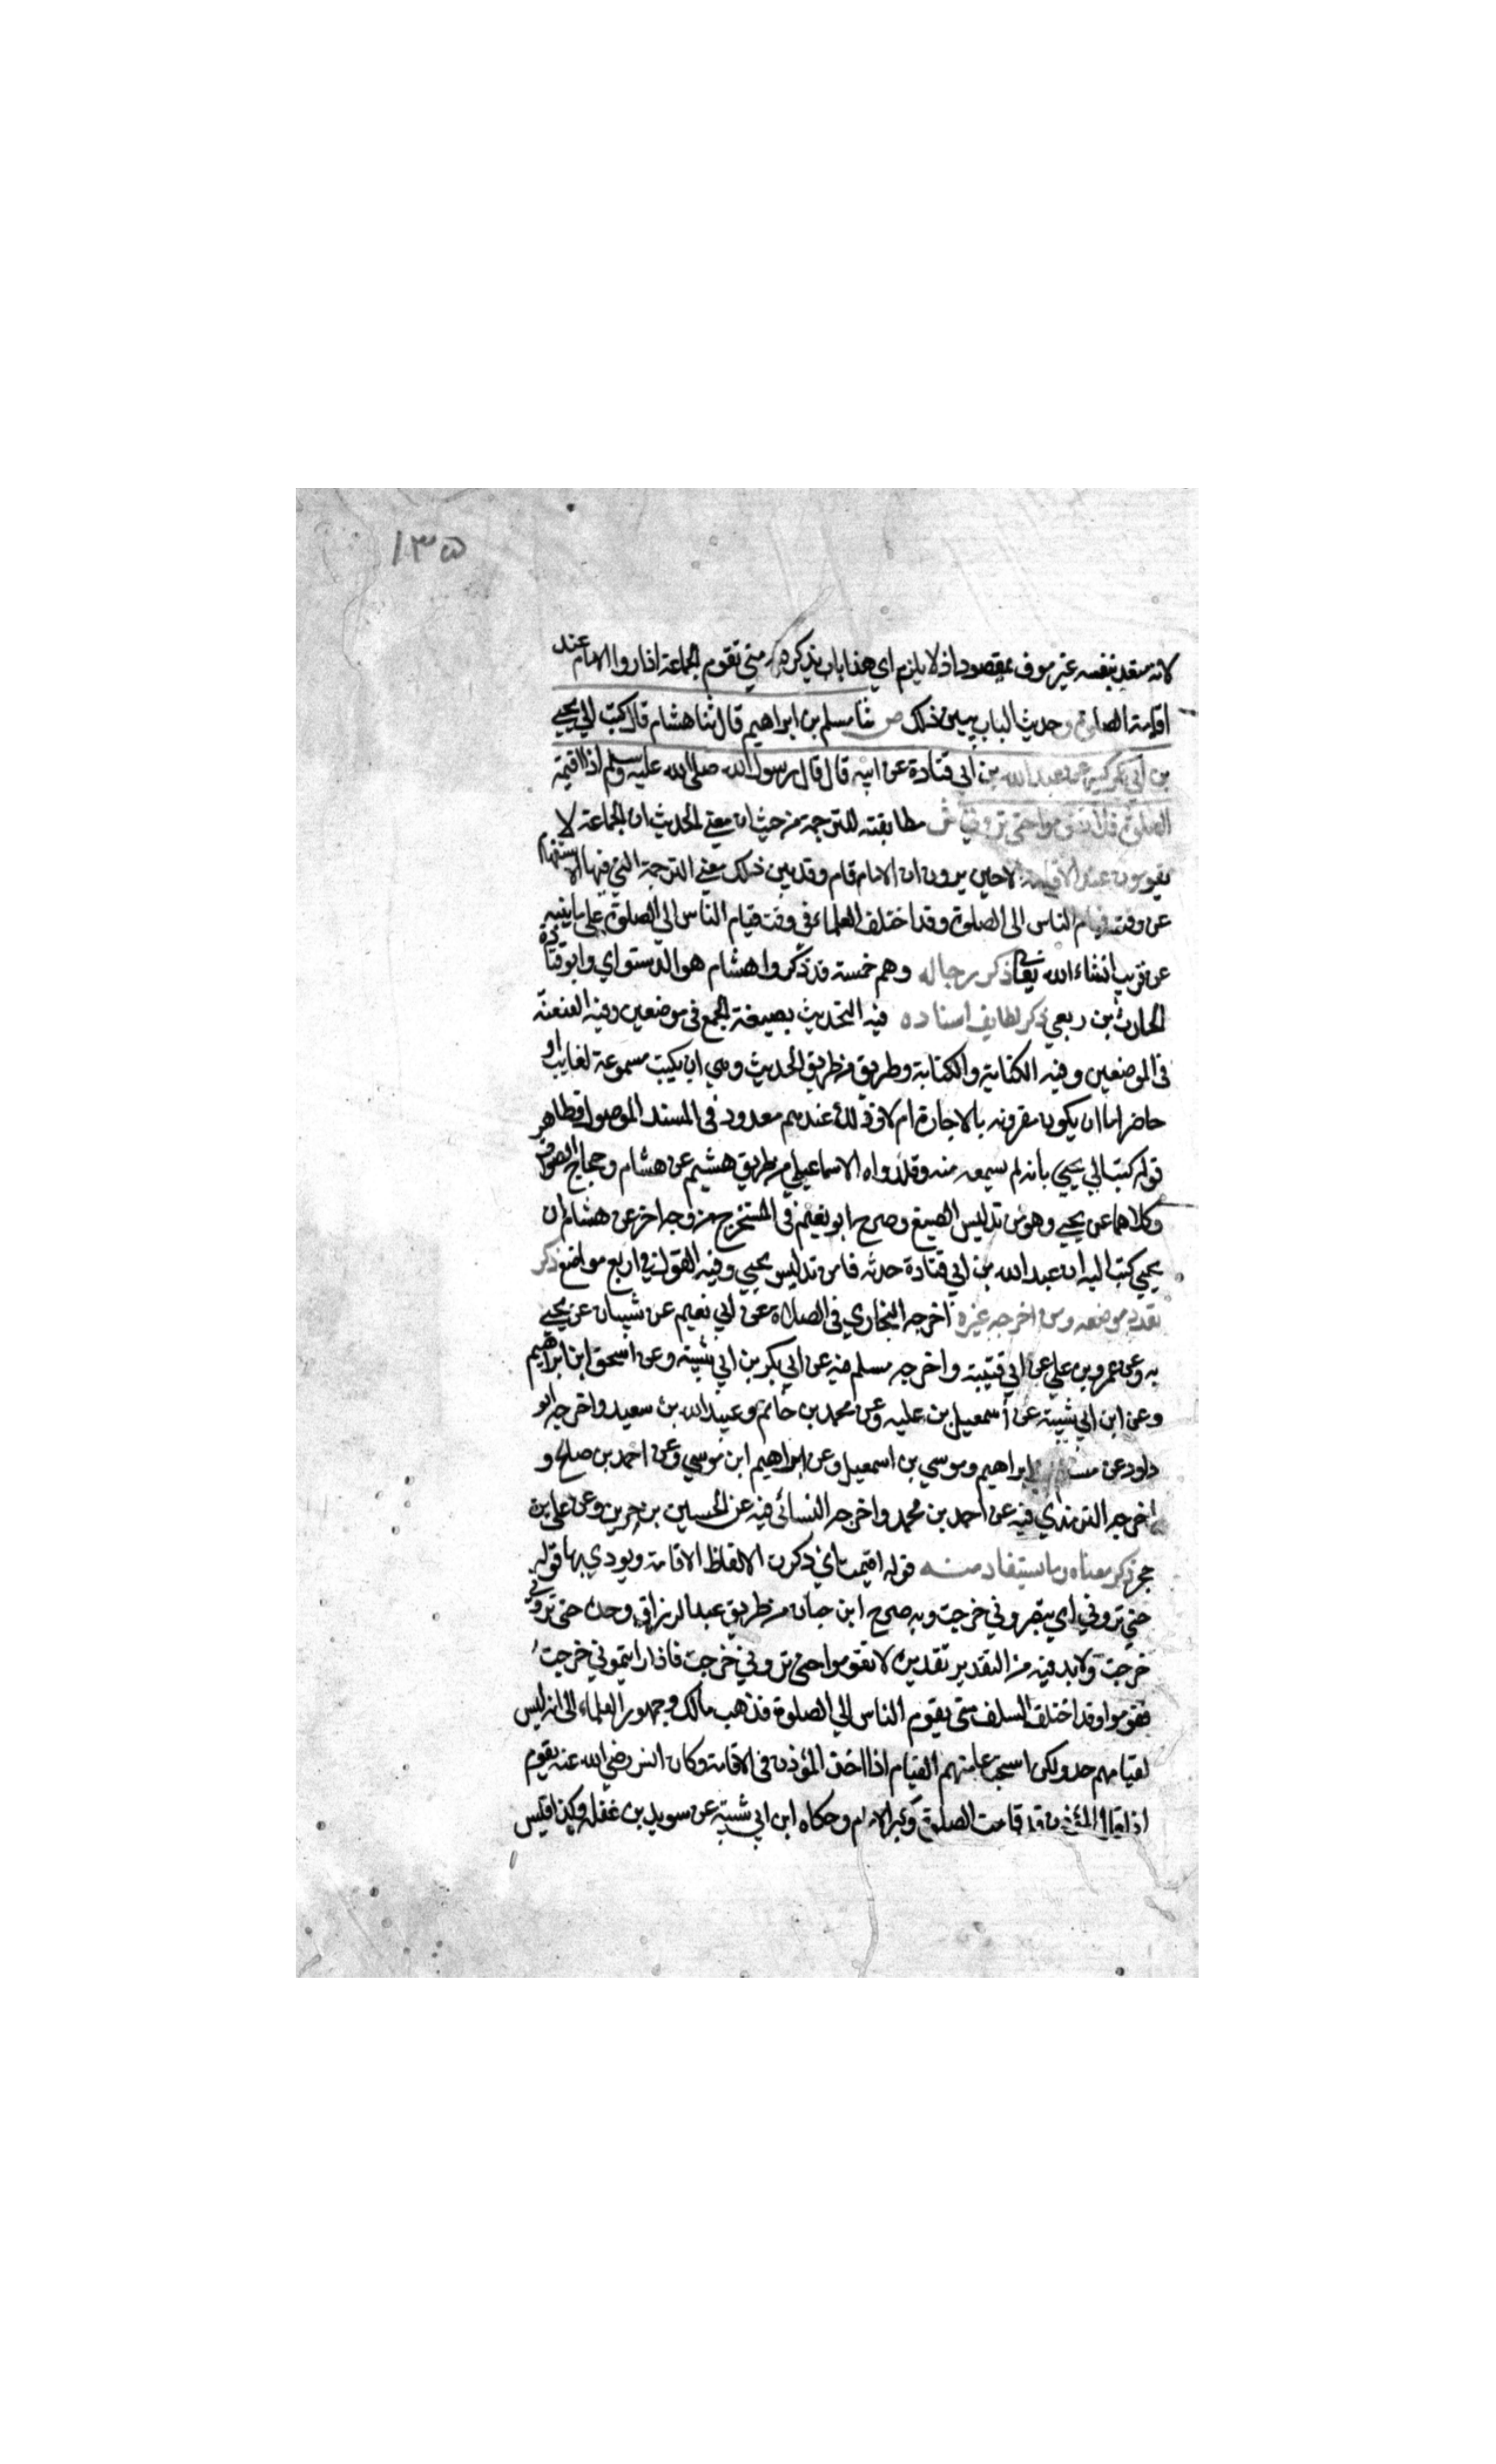 ١٣٥
لانه منقد بنفسه غير موف بمقصود اذ لا يلزم اي هذا باب يذكر فيه متي تقوم الجماعة اذا روا الامام عند
اقامة الصلوة وحديث الباب يبين ذلك ص ثنا مسلم بن ابراهيم قال ثنا هشام قال كتب الي يحيي
بن ابي بكر كثير عن عبد الله بن ابي قتادة عن ابيه قال قال رسول الله صلي الله عليه وسلم اذا اقيمة
الصلوة فلا تقوموا حتي تروني ش مطابقته للترجمة من حيث ان معني الحديث ان الجماعة لا
يقومون عند الاقامة الا حين يرون ان الامام قام وقد بين ذلك معني الترجمة التي فيها الاستفهام
عن وقت قيام الناس الى الصلوة وقد اختلف العلماء في وقت قيام الناس الي الصلوة علي ما ينبه
عن قريب انشاء الله تعالي ذكر رجاله وهم خمسة قد ذكروا هشام هو الدستواي وابو قتادة
الحارث بن ربعي ذكر لطايف اسناده فيه التحديث بصيغة الجمع في موضعين وفيه العنعنة
في الموضعين وفيه الكتابة والكتابة وطريق من طريق الحديث وهي ان يكتب مسموعة لغايب او
حاضر اما ان يكون مقرونه بالاجازة ام لا وذلك عندهم معدود في المسند الموصول وظاهر
قوله كتب الي يحيي بانه لم يسمعه منه وقد رواه الاسماعيلي من طريق هشيم عن هشام وحجاج الصواف
وكلاهما عن يحيي وهو من تدليس الصيغ وصرح ابو نعيم في المستخرج من وجه اخر عن هشام ان
يحيي كتب اليه ان عبد الله بن ابي قتادة حدثه فامن تدليس يحيي وفيه القول في اربع مواضع ذكر
تعدد موضعه ومن اخرجه غيره اخرجه البخاري في الصلاة عن ابي نعيم عن شيبان عن يحيي
به وعن عمرو بن علي عن ابي قتيبة واخرجه مسلم فيه عن ابي بكر بن ابي شيبة وعن اسحق ابن ابراهيم
وعن ابن ابي شيبة عن اسمعيل بن عليه وعن محمد بن حاتم وعبيد الله بن سعيد واخرجه ابو
داود عن ابراهيم وموسي بن اسمعيل وعن ابراهيم ابن موسي وعن احمد بن صلح و
اخرجه الترمذي فيه عن احمد بن محمد واخرجه النسائي فيه عن الحسين بن حريث وعن علي بن
حجر ذكر معناه وما يستفاد منه قوله اقيمت اي ذكرت الالفاظ الاقامة ويودي بها قوله
حتي تروني اي تبصروني خرجت وبه صرح ابن حبان من طريق عبد الرزاق وحده حتي تروني
خرجت ولابد فيه من التقدير تقديره لا تقوموا حتي تروني خرجت فاذا رايتموني خرجت
فقوموا وقد اختلف السلف متي يقوم الناس الي الصلوة فذهب مالك وجمهور العلماء الي انه ليس
لقيامهم حد ولكن استحب عامتهم القيام اذا اخذ المؤذن في الاقامة وكان انس رضي الله عنه يقوم
اذا قال المؤذن قد قامت الصلوة وكبر الامام وحكاه ابن ابي شيبة عن سويد بن غفله وكذا قيس